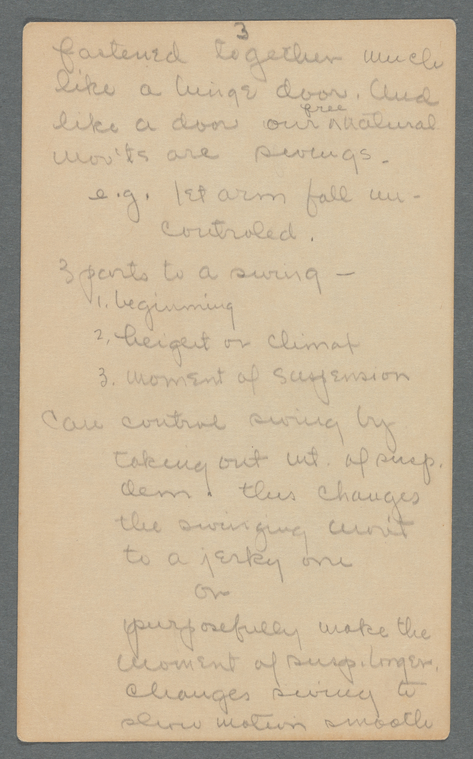 3
fastened together much
like a hinge door. And
like a door our free natural
mov'ts are swings.
e.g. let arm fall un-
controled.
3 parts to a swing –
1. beginning
2. height or climax
3. moment of suspension
Can control swing by
taking out mt. of susp.
dem. this changes
the swinging mov't
to a jerky one
or
purposefully make the
moment of susp. longer.
changes swing to
slow motion smooth